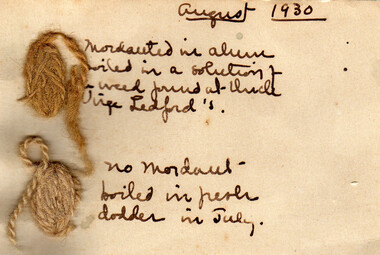 August 1930
Mordanted in alum
boiled in a solution of
a weed found at Uncle
Virge Ledford's.
no Mordant
boiled in fresh
dodder in July.